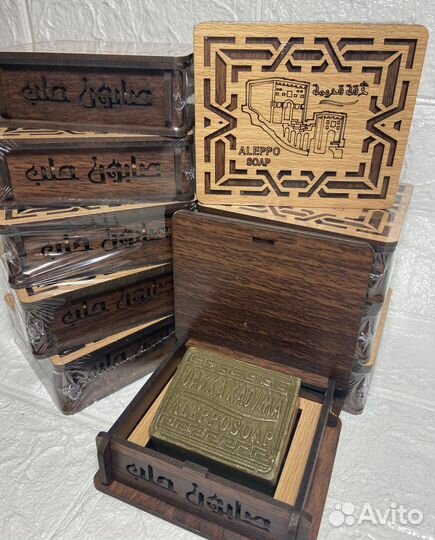 صابون حلب
صابون حلب
صابون حلب
صابون حلب
صابون حلب
دقة قديمة
ALEPPO
SOAP
DAKKA KADIMA
ALEPPOSOAP
صابون حلب
Avito